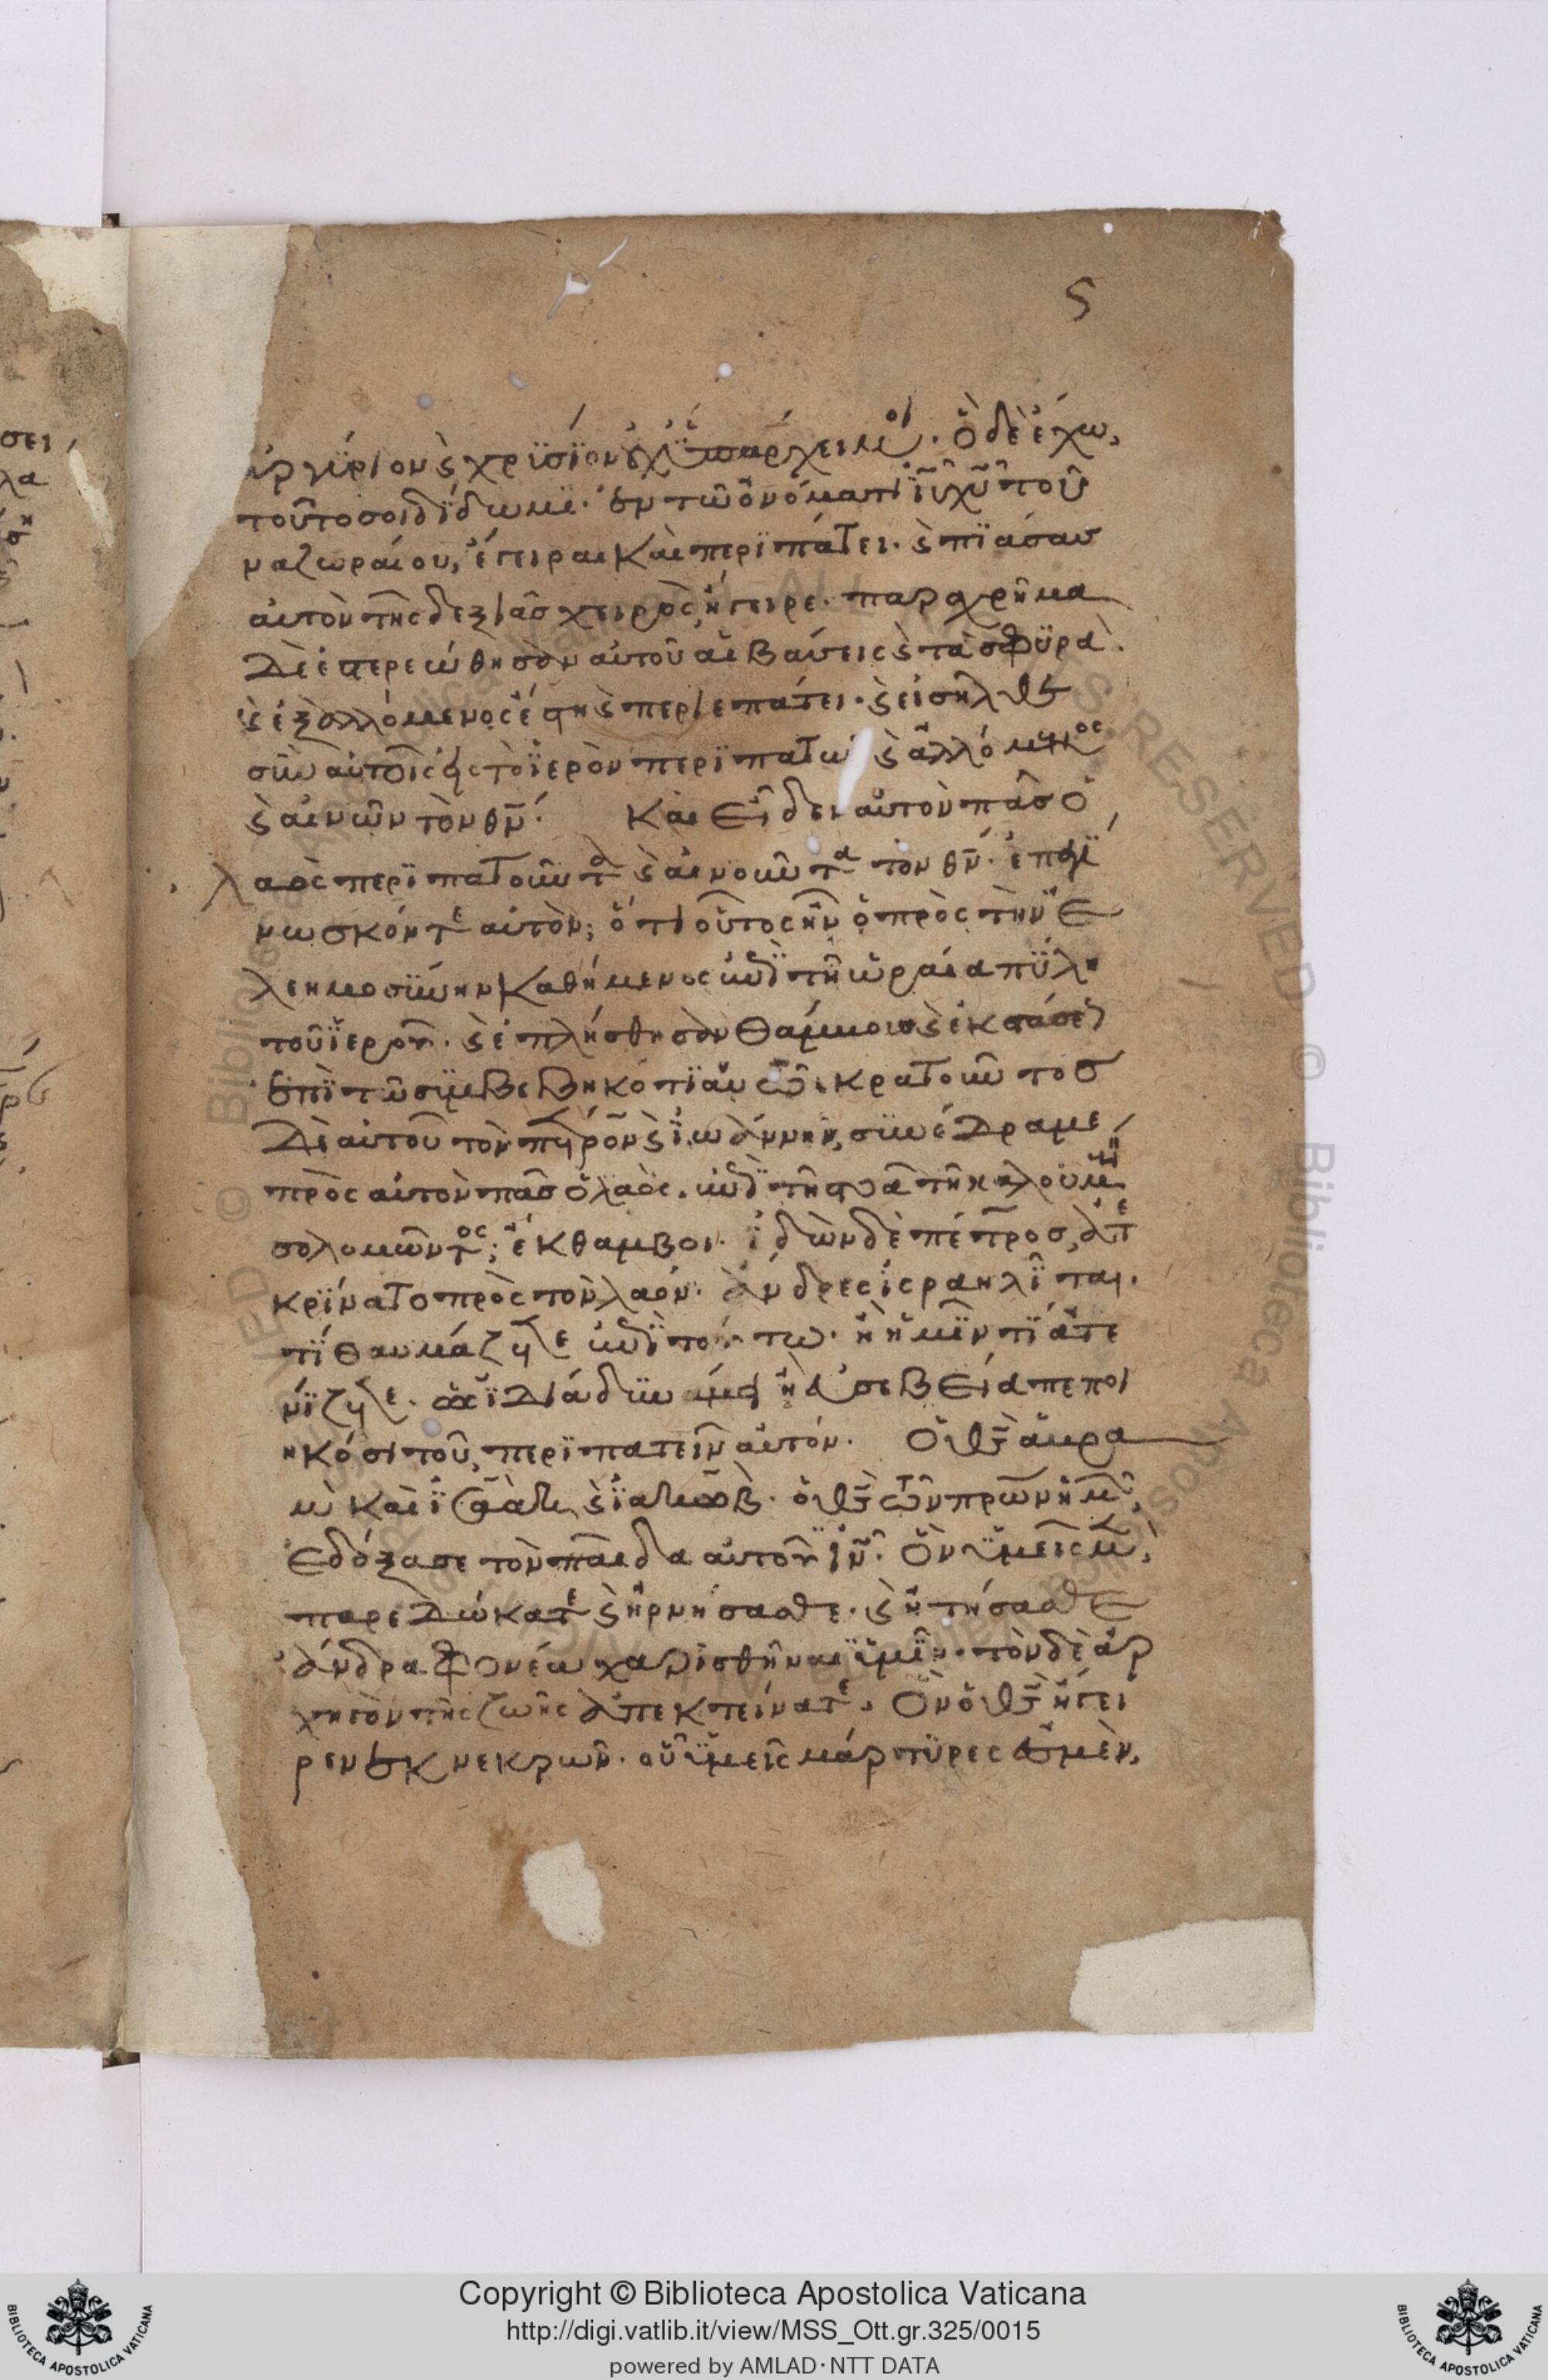 5
ἀργύριον ϗ χρϋσϊον οὐχ ὑπάρχει μοι. ὃ δὲ ἔχω,
τοῦτο σοι δίδωμϊ. ἐν τῶ ὀνόματι ῑῡ χ̄ῡ τοῦ
ναζωραίου, ἔγειραι καὶ περϊπάτει. ϗ πϊάσας
αὐτὸν τῆς δεξιᾶς χειρὸς, ἤγειρε. παραχρῆμα
δὲ ἐστερεώθησαν αὐτοῦ αἱ βάσεις ϗ τὰ σφϋρά.
ϗ ἐξαλλόμενος ἔστη ϗ περιεπάτει. ϗ εἰσῆλθε
σὺν αὐτοῖς εἰς τὸ ἱερὸν περϊπατῶ ϗ ἁλλόμενος
ϗ αἰνῶν τὸν θ̄ν̄. Καὶ εἶδεν αὐτὸν πᾶς ὁ
λαὸς περϊπατοῦντα ϗ αἰνοῦντα τὸν θ̄ν̄. ἐπεγί
νωσκόν τε αὐτὸν; ὅτι οὗτος ἦν ὁ πρὸς τὴν ἐ
λεημοσύνην καθήμενος ἐπὶ τῆ ὡραία πϋλη
τοῦ ἱεροῦ. ϗ ἐπλήσθησαν θάμβους ϗ ἐκστάσεως
ἐπὶ τῶ συμβεβηκότϊ αὐτῶ. κρατοῦντος
δὲ αὐτοῦ τὸν πέτρον ϗ ἰωάννην, συνέδραμε
πρὸς αὐτὸν πᾶς ὁ λαὸς. ἐπὶ τῆ στοᾶ τῆ καλουμένη
σολομῶντος; ἔκθαμβοι. ἰδὼν δὲ πέτρος, ἀπε
κρίνατο πρὸς τὸν λαόν. ἄνδρες ἰσραηλῖται.
τί θαυμάζετε ἐπὶ τούτω. ἢ ἡμῖν τί ἀτε
νίζετε. ὡς ἰδία δυνάμει ἢ εὐσεβεία πεποι
ηκόσι τοῦ περϊπατεῖν αὐτόν. Ὁ θς ἀβρα
ὰμ καὶ ἰσαὰκ ϗ ἰακώβ. ὁ θς τῶν πρων ἡμῶν,
ἐδόξασε τὸν παῖδα αὐτοῦ ῑν̄. ὃν ὑμεῖς μὲν,
παρεδώκατε ϗ ἠρνήσασθε. ϗ ἠτήσασθε
ἄνδρα φονέα χαρισθῆναι ὑμῖν. τὸν δὲ ἀρ
χηγὸν τῆς ζωῆς ἀπεκτείνατε. Ὃν ὁ θς ἤγει
ρεν ἐκ νεκρῶν. οὗ ὑμεῖς μάρτϋρες ἐσμὲν,
Copyright © Biblioteca Apostolica Vaticana
http://digi.vatlib.it/view/MSS_Ott.gr.325/0015
powered by AMLAD·NTT DATA